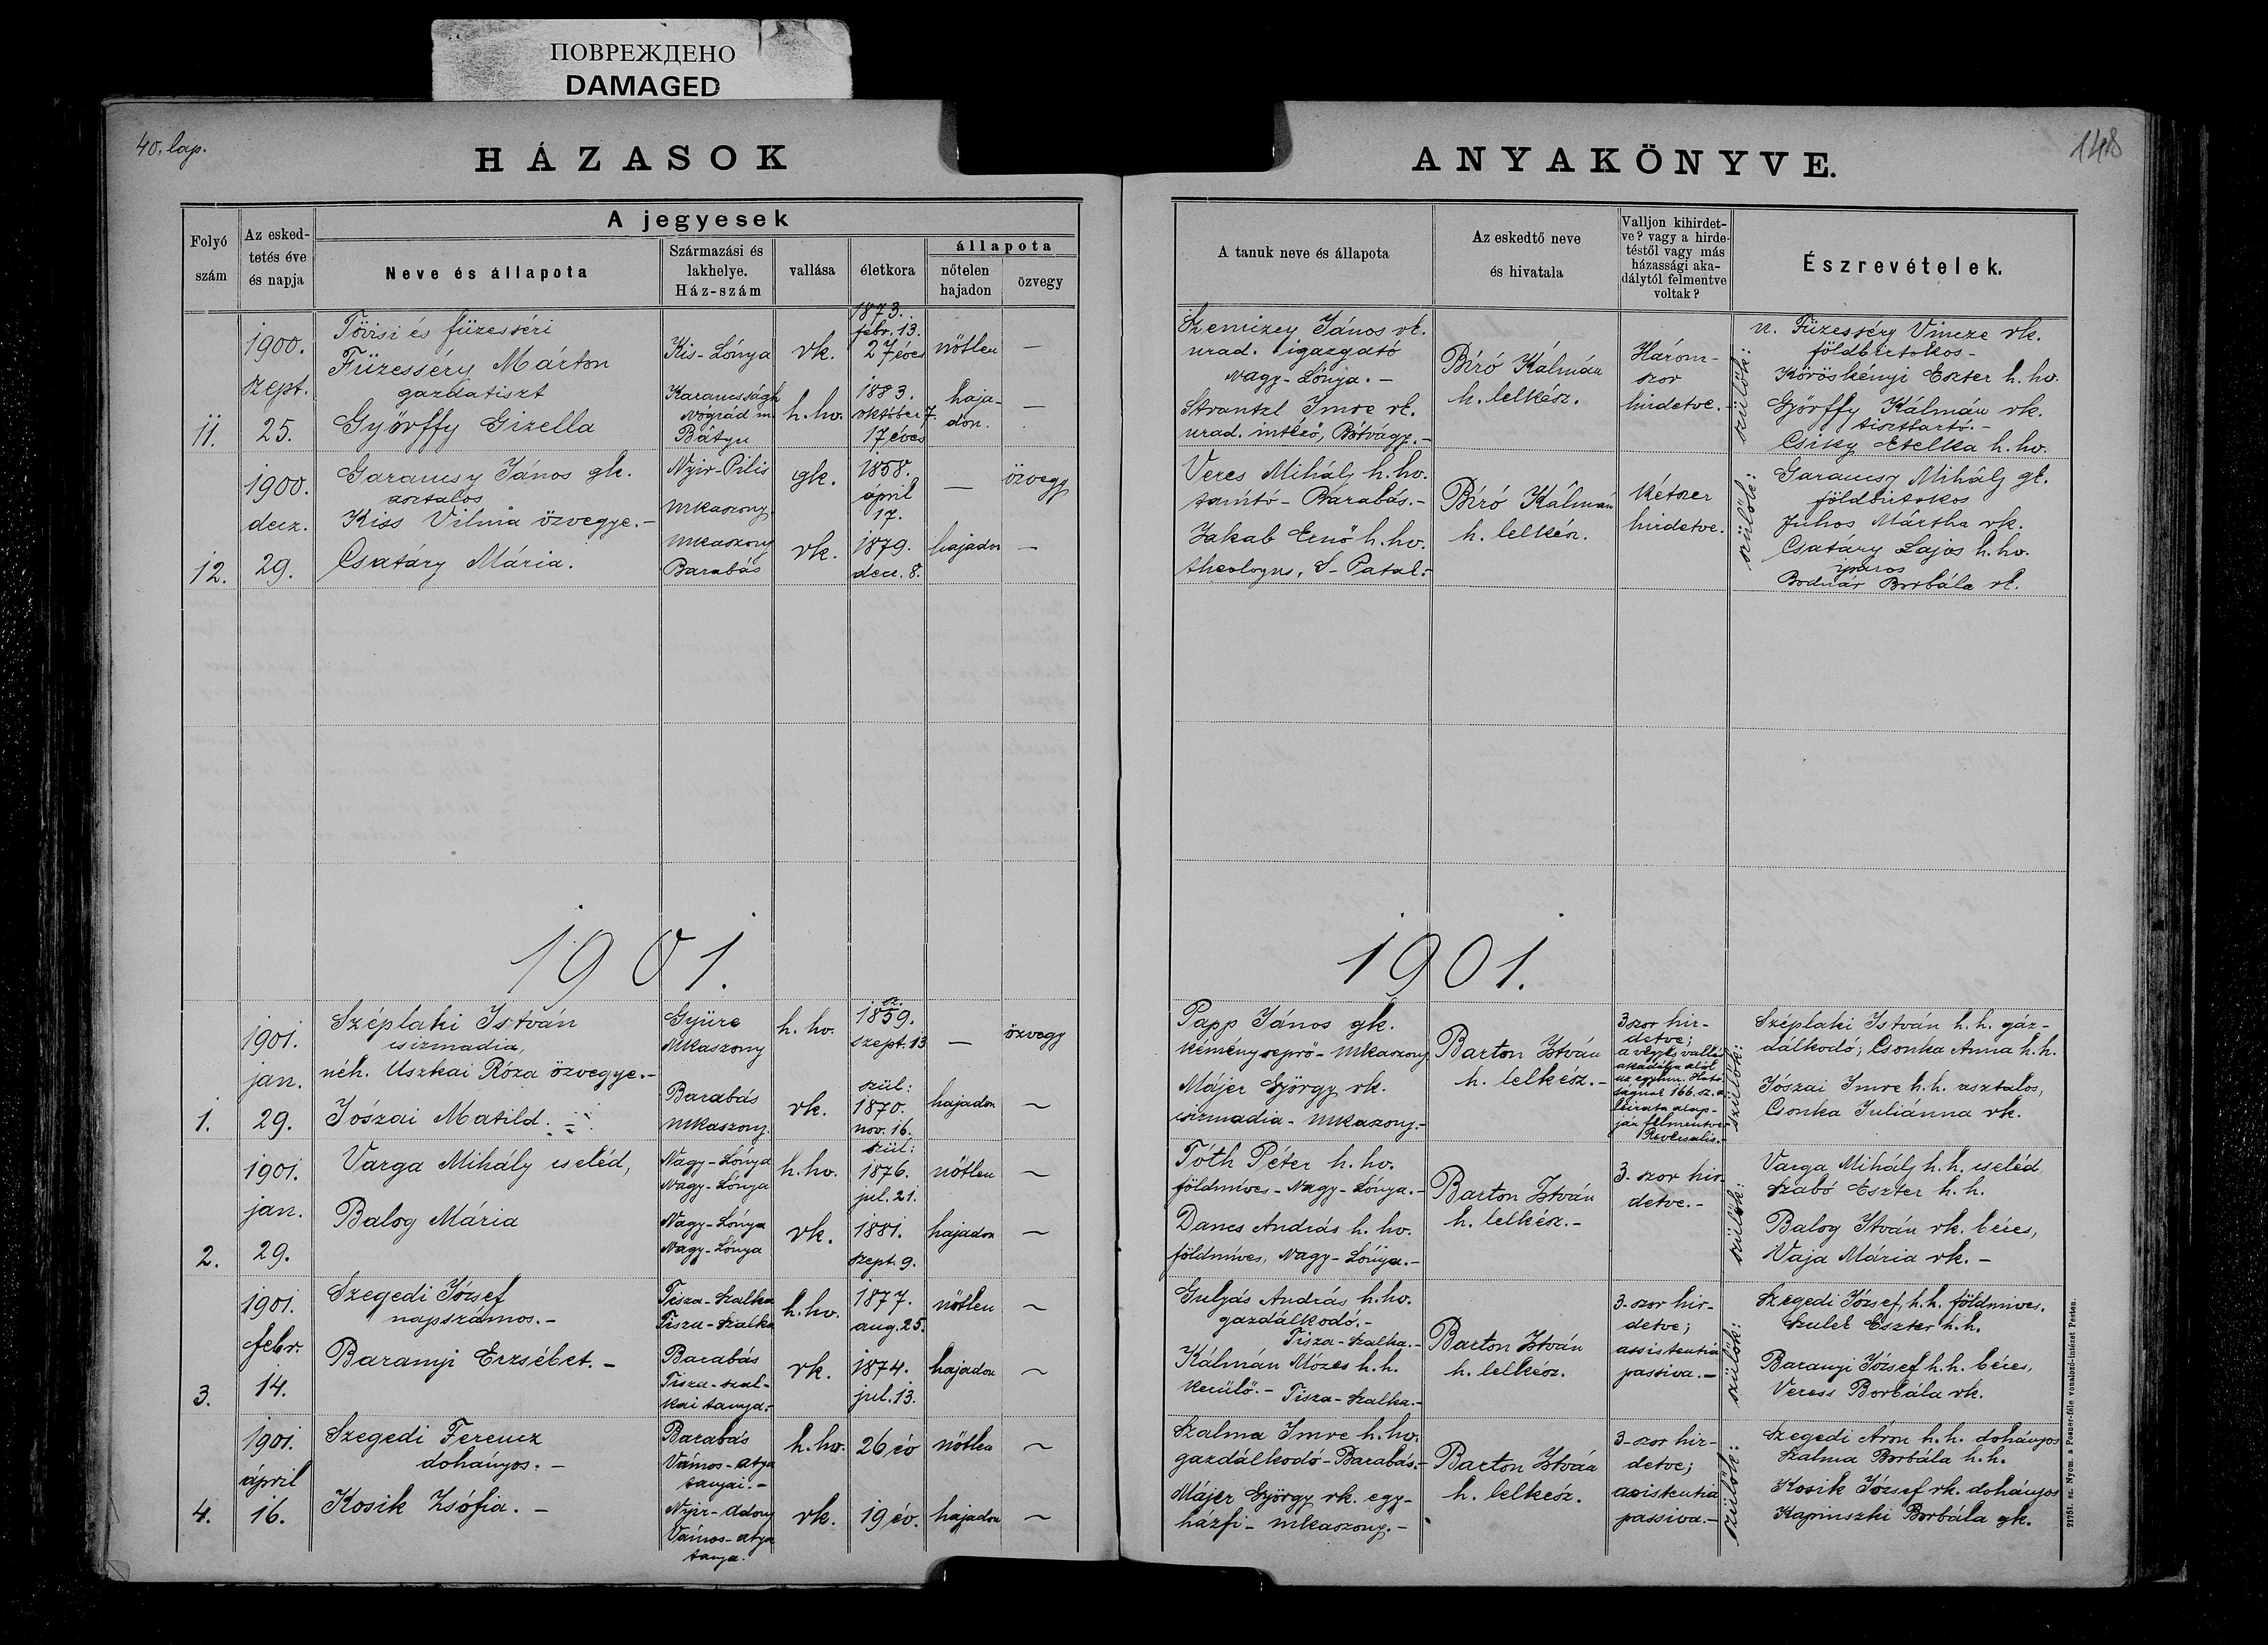 ПОВРЕЖДЕНО
DAMAGED
40. lap.
HÁZASOK
ANYAKÖNYVE.
148
Folyó
szám
Az esked-
tetés éve
és napja
A jegyesek
Neve és állapota
Származási és
lakhelye.
Ház-szám
vallása
életkora
állapota
nőtelen
hajadon
özvegy
A tanuk neve és állapota
Az eskedtő neve
és hivatala
Valljon kihirdet-
ve? vagy a hirde-
téstől vagy más
házassági aka-
dálytól felmentve
voltak?
Észrevételek.
11.
1900.
szept.
25.
füzesséri
Füzesséry Márton
gazdatiszt
Győrffy Gizella
Kis-Lónya
Nográd m.
Bátyu
rk.
h. hv.
1873.
febr. 13.
27 éves
1883.
október 7.
17 éves
nőtlen
haja-
don.
—
—
Szemizey János rk.
urad. igazgató
Nagy-Lónya. -
Strantzl Imre rk.
urad. intéző,
Bíró Kálmán
h. lelkész.
Három-
szor
hirdetve. -
szülők:
n. Füzesséry Vincze rk.
földbirtokos -
Köröskényi Eszter h. hv.
Győrffy Kálmán rk.
tiszttartó. -
Csiky Etelka h. hv.
12.
1900.
decz.
29.
Garancsy János gk.
asztalos
Kiss Vilma özvegye. -
Csatáry Mária.
Nyir-Pilis
Mkaszony
Mkaszony
Barabás
gk.
rk.
1858.
ápril
17.
1879.
dece. 8.
—
hajadon
özvegy
—
Veres Mihály h. hv.
tanító - Barabás. -
Jakab Ernő h. hv.
theologus, S-Patak.
Bíró Kálmán
h. lelkész.
Kétszer
hirdetve.
szülők:
Garancsy Mihály gk.
földbirtokos
Juhos Mártha rk.
Csatáry Lajos h. hv.
iparos
Bodnár Borbála rk.
1901.
1901.
1.
1901.
jan.
29.
Széplaki István
csizmadia,
néh. Uszkai Róza özvegye. -
Jószai Matild.
Gyüre
Mkaszony
Barabás
Mkaszony.
h. hv.
rk.
sz.
1859.
szept. 13
szül:
1870.
nov. 16.
—
hajadon
özvegy
~
Papp János gk.
kéményseprő - Mkaszony
Májer György rk.
csizmadia - Mkaszony. -
Barton István
h. lelkész. -
3szor hir-
detve;
a vegyes vallás
akadálya alól
az egyhm. Ható-
ságnak 166. sz. a.
leirata alap-
ján felmentve
Reversalis. -
szülők:
Széplaki István h. h. gaz-
dálkodó; Csonka Anna h. h.
Jószai Imre h. h. asztalos,
Csonka Juliánna rk.
2.
1901.
jan.
29.
Varga Mihály cseléd,
Balog Mária
Nagy-Lónya
Nagy-Lónya
Nagy-Lónya
Nagy-Lónya
h. hv.
rk.
szül:
1876.
jul. 21.
1881.
szept. 9.
nőtlen
hajadon
~
~
Tóth Péter h. hv.
földmíves - Nagy-Lónya. -
Dancs András h. hv.
földmíves, Nagy-Lónya. -
Barton István
h. lelkész. -
3. szor hir-
detve. -
szülők:
Varga Mihály h. h. cseléd,
Szabó Eszter h. h.
Balog István rk. béres,
Vaja Mária rk. -
3.
1901.
febr.
14.
Szegedi József
napszámos. -
Baranyi Erzsébet. -
Tisza-Szalka
Tisza-Szalka
Barabás
Tisza-szal-
kai tanya. -
h. hv.
rk.
1877.
aug. 25.
1874.
jul. 13.
nőtlen
hajadon
~
~
Gulyás András h. hv.
gazdálkodó. -
Tisza-Szalka. -
Kálmán Mózes h. h.
kerülő. - Tisza-Szalka. -
Barton István
h. lelkész.
3-szor hir-
detve;
assistentia
passiva. -
szülők:
Szegedi József, h. h. földmíves.
Eszter h. h.
Baranyi József h. h. béres,
Veress Borbála rk.
4.
1901.
ápril
16.
Szegedi Ferencz
dohányos. -
Kosik Zsófia. -
Barabás
Vámos-atya
tanyai. -
Nyir-Adony
Vámos-atya
tanya.
h. hv.
rk.
26 év
19 év.
nőtlen
hajadon
~
~
Szalma Imre h. hv.
gazdálkodó - Barabás. -
Májer György rk. egy-
házfi - Mkaszony. -
Barton István
h. lelkész.
3-szor hir-
detve;
asistentia
passiva. -
szülők:
Szegedi Áron h. h. dohányos
Szalma Borbála h. h.
Kosik József rk. dohányos
Kapinszki Borbála gk.
21751. sz. Nyom. a Poszer-féle vonalozó-intézet Pesten.